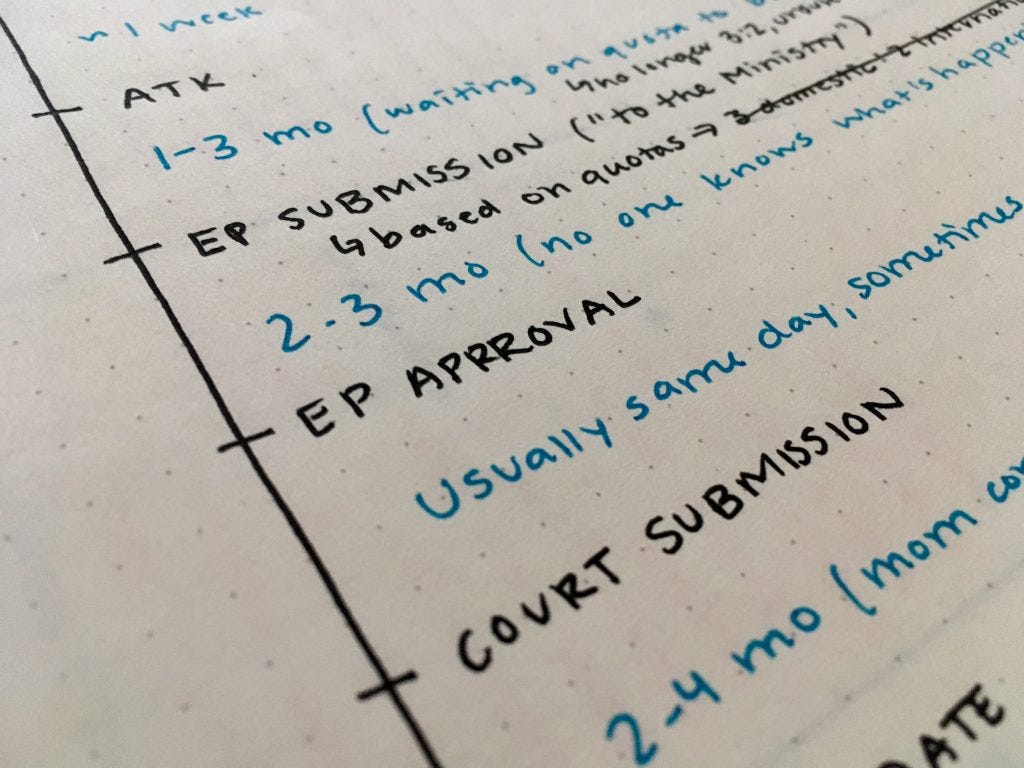 ~ 1 week
ATK
1-3 mo (waiting on quota to
↳ no longer 3:2, usu
EP SUBMISSION ("to the Ministry")
↳ based on quotas → 3 domestic : 2 internati
2-3 mo (no one knows what's happen
EP APRROVAL
Usually same day, sometimes
COURT SUBMISSION
2-4 mo (mom co
DATE